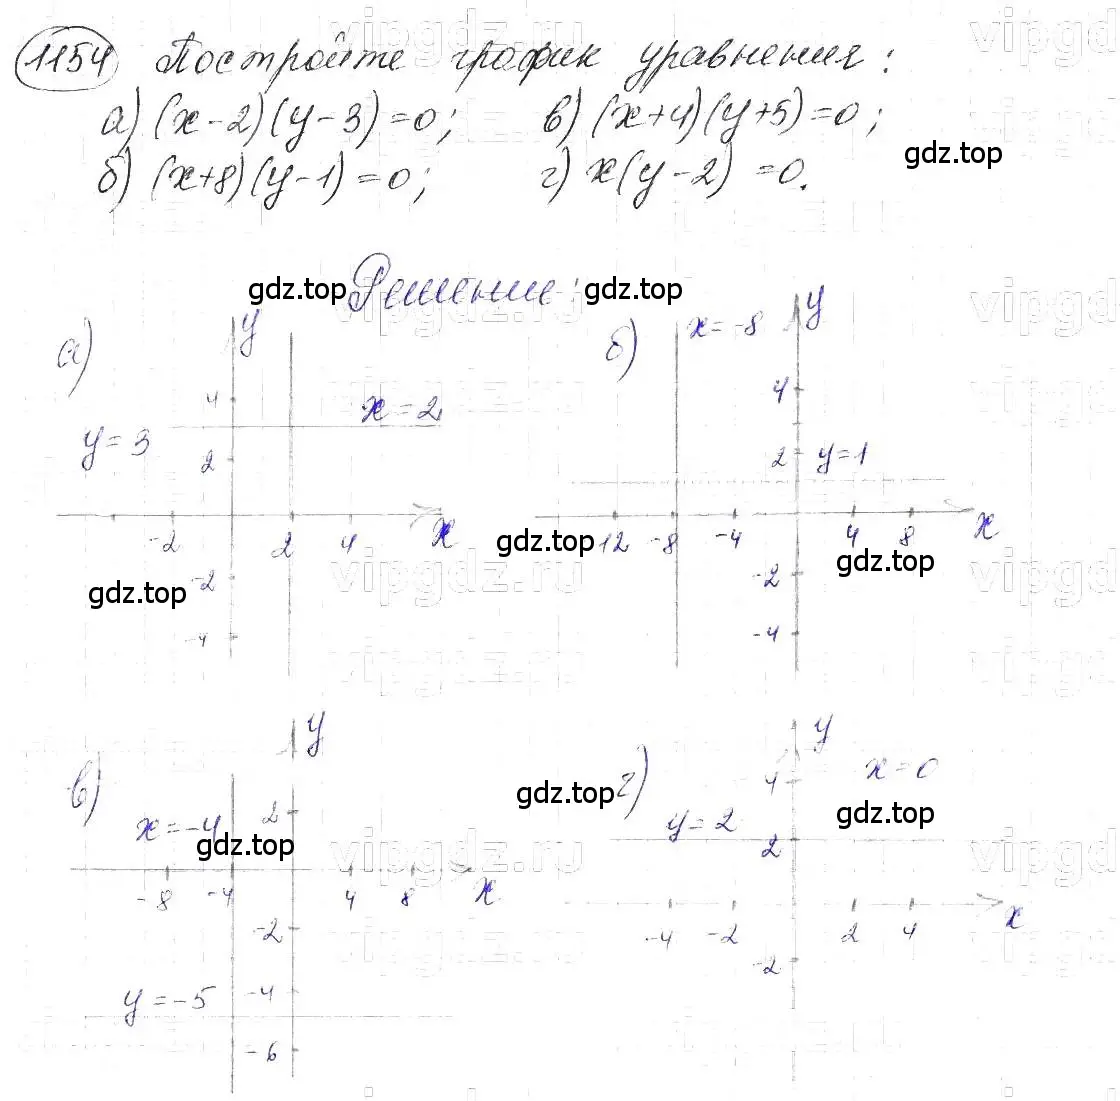 1154 Постройте график уравнения:
а) (x-2)(y-3)=0; в) (x+4)(y+5)=0;
б) (x+8)(y-1)=0; г) x(y-2)=0.
gdz.top
Решение:
gdz.top gdz.top
а) y
4
x=2
y=3
2
-2 2 4 x
-2
-4
gdz.top
б) x=-8 y
4
2 y=1
-12 -8 -4 4 8 x
-2
-4
gdz.top gdz.top
в) y
x=-4 2
gdz.top
-8 -4 4 8 x
-2
y=-5 -4
-6
г) y
4 x=0
gdz.top gdz.top
y=2
2
-4 -2 2 4 x
-2
vipgdz.ru